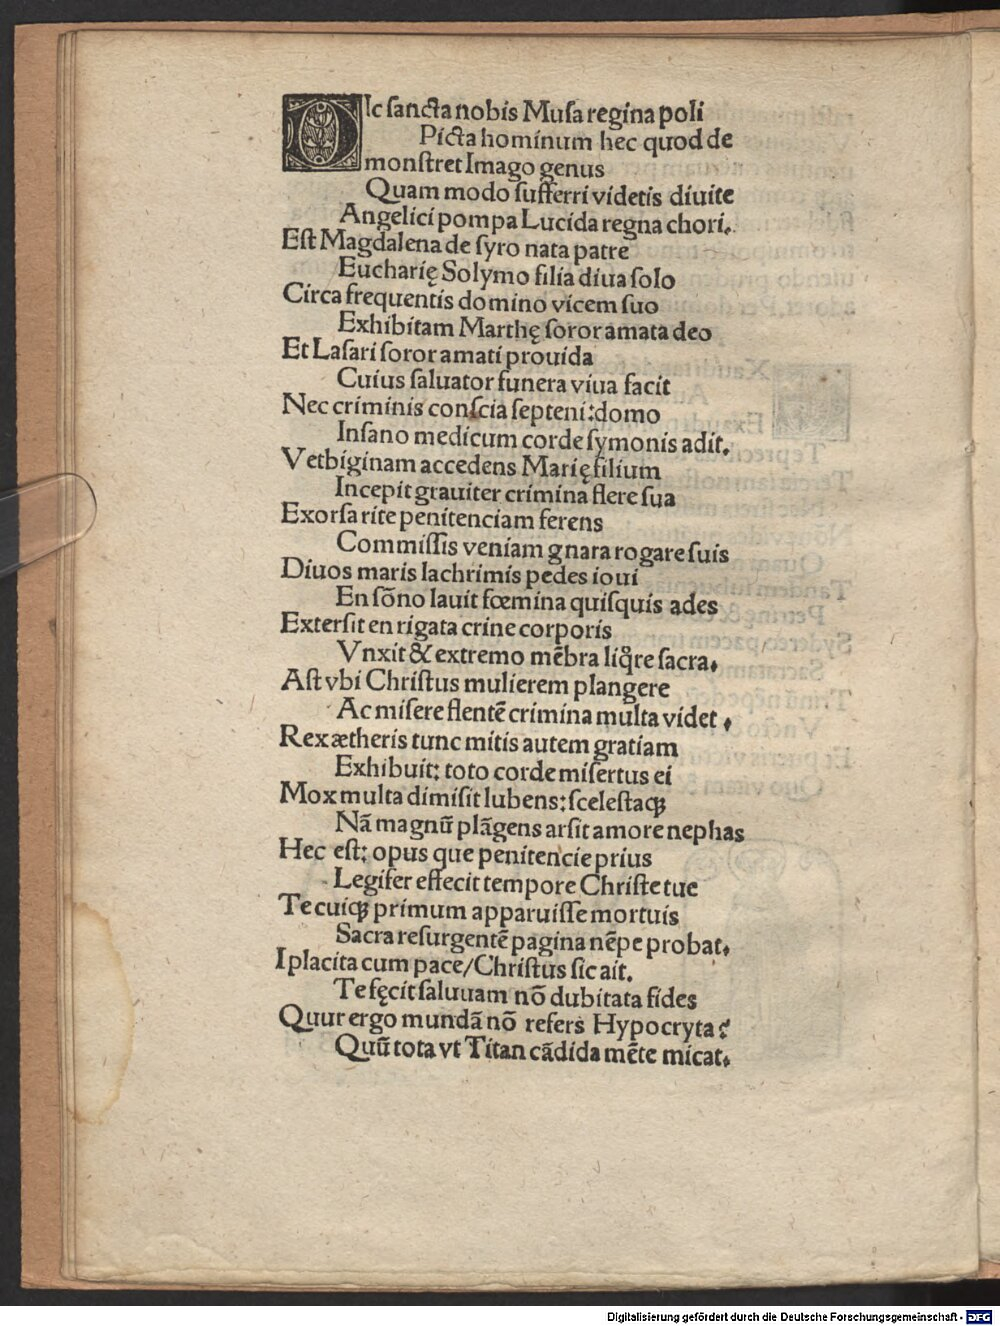 DIc ſancta nobis Muſa regina poli
Picta hominum hec quod de
monſtret Imago genus
Quam modo ſufferri videtis diuite
Angelici pompa Lucida regna chori.
Eſt Magdalena de ſyro nata patre
Eucharię Solymo filia diua ſolo
Circa frequentis domino vicem ſuo
Exhibitam Marthę ſoror amata deo
Et Laſari ſoror amati prouida
Cuius ſaluator funera viua facit
Nec criminis conſcia ſepteni: domo
Inſano medicum corde ſymonis adit.
Vetbiginam accedens Marię filium
Incepit grauiter crimina flere ſua
Exorſa rite penitenciam ferens
Commiſſis veniam gnara rogare ſuis
Diuos maris lachrimis pedes ioui
En ſõno lauit fœmina quiſquis ades
Exterſit en rigata crine corporis
Vnxit & extremo mēbra liq̄re ſacra.
Aſt vbi Chriſtus mulierem plangere
Ac miſere flentē crimina multa videt.
Rex ætheris tunc mitis autem gratiam
Exhibuit: toto corde miſertus ei
Mox multa dimiſit lubens: ſceleſtaqꝫ
Nã magnū plãgens arſit amore nephas
Hec eſt: opus que penitencie prius
Legifer effecit tempore Chriſte tue
Te cuiqꝫ primum apparuiſſe mortuis
Sacra reſurgentē pagina nēpe probat.
I placita cum pace/Chriſtus ſic ait.
Te fęcit ſaluuam nõ dubitata fides
Quur ergo mundã nõ refers Hypocryta?
Quū tota vt Titan cãdida mēte micat.
Digitalisierung gefördert durch die Deutsche Forschungsgemeinschaft - DFG